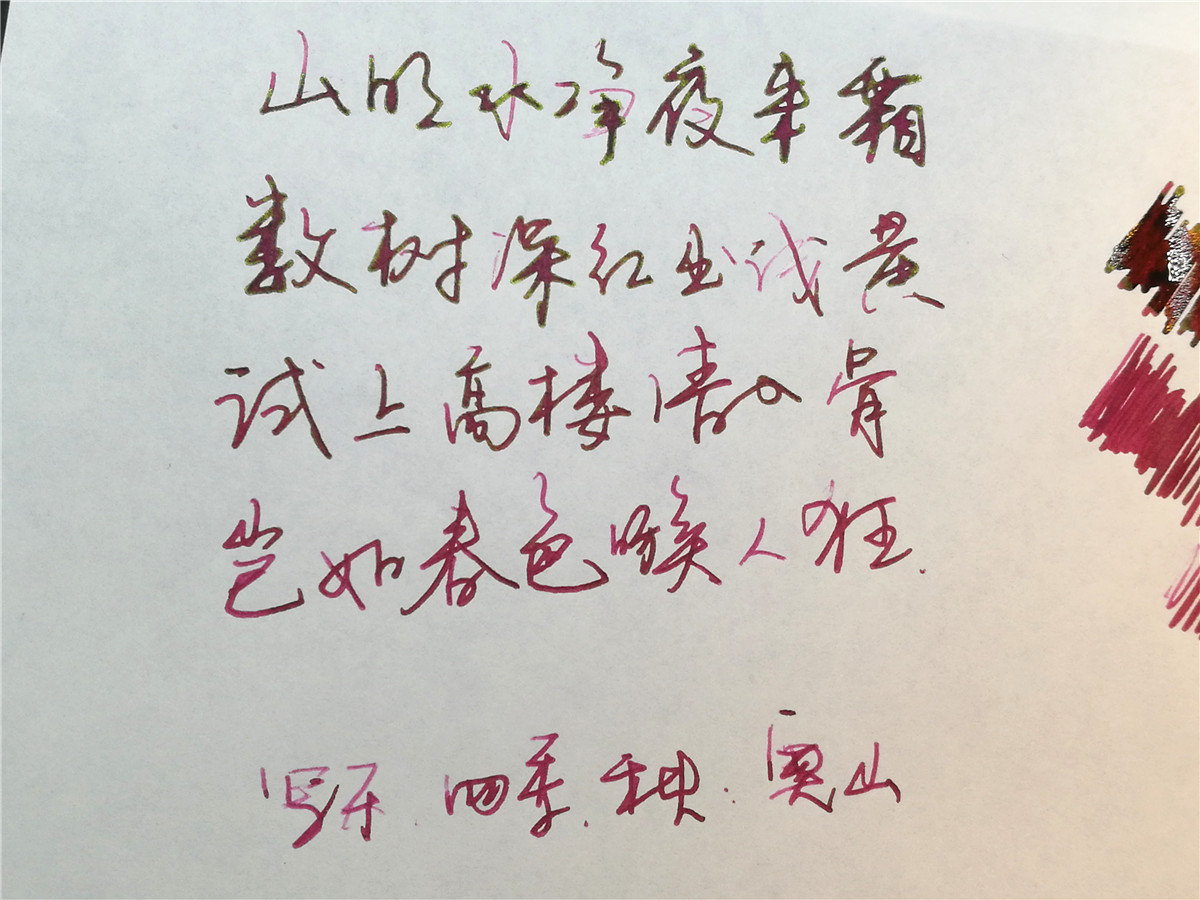 山明水净夜来霜
数树深红出浅黄
试上高楼清入骨
岂如春色嗾人狂.
写乐 四季.秋.奥山